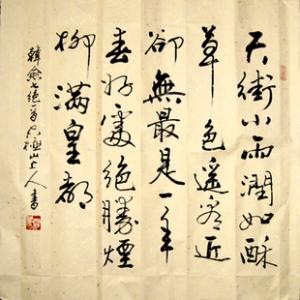 天街小雨潤如酥
草色遙看近
卻無最是一年
春好處絕勝煙
柳滿皇都
韓愈七絕一首 山上人書